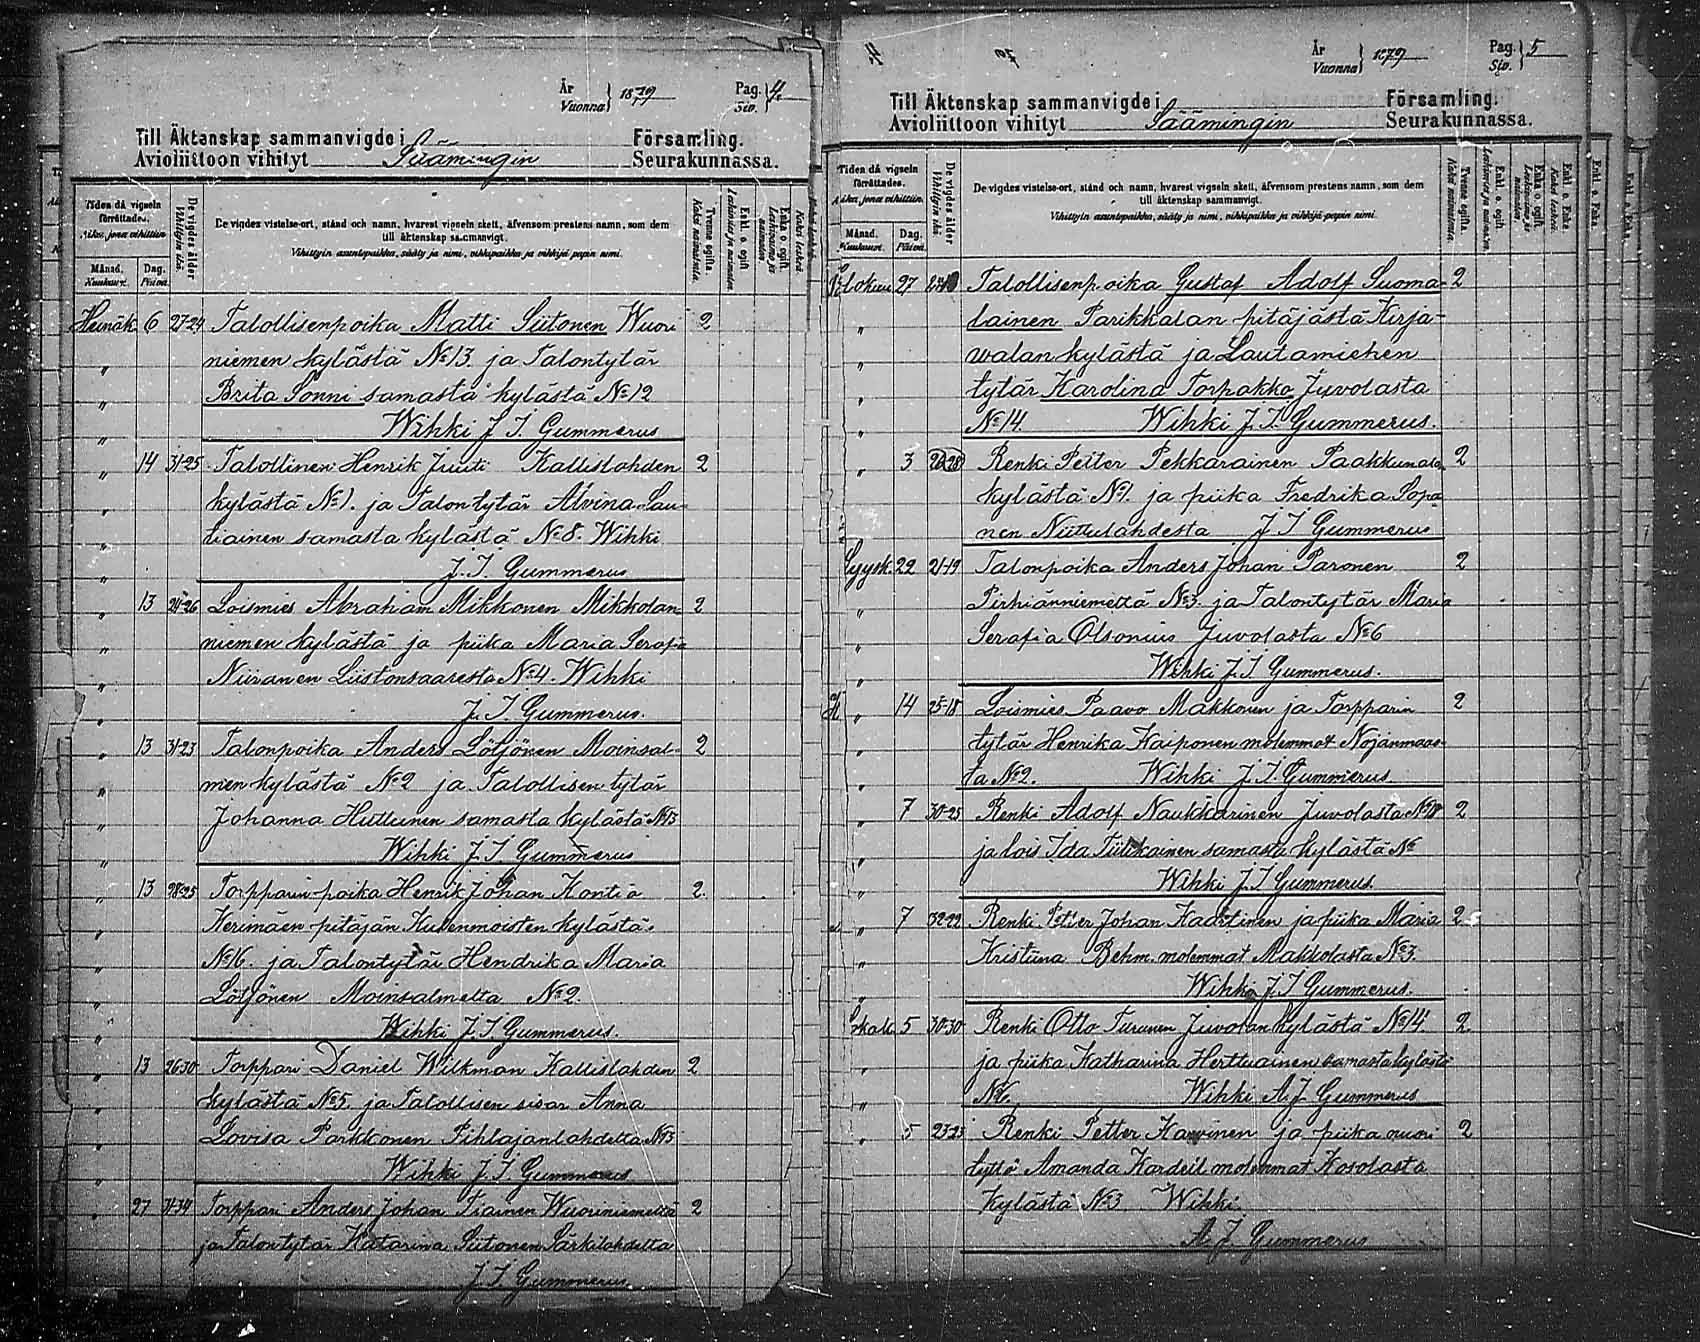 År
Vuonna } 1879
Pag.
Siv. } 4.
Till Äktenskap sammanvigde i Församling.
Avioliittoon vihityt Säämingin Seurakunnassa.
Tiden då vigseln förrättades.
Aika, jona vihittiin
Månad. Kuukausi.
Dag. Päivä
De vigdes ålder
Vihittyin ikä.
De vigdes vistelse-ort, stånd och namn, hvarest vigseln skett, äfvensom prestens namn, som dem
till äktenskap sammanvigt.
Vihittyin asuntopaikka, sääty ja nimi, vihkipaikka ja vihkijä-papin nimi.
Tvenne ogifta.
Kaksi naimatonta.
Heinäk. 6 27-24 Talollisenpoika Matti Siitonen Wuori 2
niemen kylästä No 13. ja Talontytär
Brita Sonni samasta kylästä No 12
Wihki J. I. Gummerus
14 31-25 Talollinen Henrik Juuti Kallislahden 2
kylästä No 1. ja Talontytär Alvina Lau-
tiainen samasta kylästä No 8. Wihki
J. I. Gummerus
13 24-26 Loismies Abraham Mikkonen Mikkolan 2
niemen kylästä ja piika Maria Serafia
Niiranen Liistonsaaresta No 4. Wihki
J. I. Gummerus.
13 31-23 Talonpoika Anders Lötjönen Moinsal- 2
men kylästä No 2 ja Talollisen tytär
Johanna Huttunen samasta kylästä No 3
Wihki J. I. Gummerus
13 28-25 Torpparin poika Henrik Johan Kontio 2.
Kerimäen pitäjän Kulenmoisten kylästä
No 16. ja Talontytär Hendrika Maria
Lötjönen Moinsalmelta No 2.
Wihki J. I. Gummerus.
13 26-30 Torppari Daniel Wilkman Kallislahden 2
kylästä No 5. ja Talollisen sisar Anna
Lovisa Parkkonen Pihlajanlahdelta No 3
Wihki J. I. Gummerus
27 Torppari Anders Johan Tiainen Wuoriniemeltä 2
ja Talontytär Katarina Siitonen Särkilahdelta
J. I. Gummerus
År
Vuonna } 1879
Pag.
Siv. } 5
Till Äktenskap sammanvigde i Församling.
Avioliittoon vihityt Säämingin Seurakunnassa.
Tiden då vigseln förrättades.
Aika, jona vihittiin
Månad. Kuukausi.
Dag. Päivä
De vigdes ålder
Vihittyin ikä.
De vigdes vistelse-ort, stånd och namn, hvarest vigseln skett, äfvensom prestens namn, som dem
till äktenskap sammanvigt.
Vihittyin asuntopaikka, sääty ja nimi, vihkipaikka ja vihkijä-papin nimi.
Tvenne ogifta.
Kaksi naimatonta.
Elokuu 27 Talollisenpoika Gustaf Adolf Suoma- 2
lainen Parikkalan pitäjästä Kirja-
walan kylästä ja Lautamiehen
tytär Karolina Torpakko Juvolasta
No 14. Wihki J. I. Gummerus.
3 Renki Petter Pekkarainen Paakkunala 2
kylästä No 1. ja piika Fredrika Sopa-
nen Niittulahdesta J. I Gummerus
Syysk. 22 21-19 Talonpoika Anders Johan Paronen 2
Pirhiänniemeltä No 3. ja Talontytär Maria
Serafia Olsonius Juvolasta No 6
Wihki J. I Gummerus.
14 25-18 Loismies Paavo Makkonen ja Torpparin 2
tytär Henrika Kaiponen molemmat Nojanmaas-
ta No 2. Wihki J. I. Gummerus
7 30-25 Renki Adolf Naukkarinen Juvolasta No 18 2
ja lois Ida Tiilikainen samasta kylästä No 6
Wihki J. I Gummerus.
7 32-22 Renki Petter Johan Kaartinen ja piika Maria 2
Kristiina Behm molemmat Makkolasta No 3.
Wihki J. I Gummerus.
Lokak. 5 30-30 Renki Otto Turunen Juvolan kylästä No 14 2
ja piika Katharina Herttuainen samasta kylästä
No 6. Wihki A. J Gummerus
5 23-23 Renki Petter Karvinen ja piika nuori 2
tyttö Amanda Kardeil molemmat Kosolasta
Kylästä No 3 Wihki
A. J. Gummerus